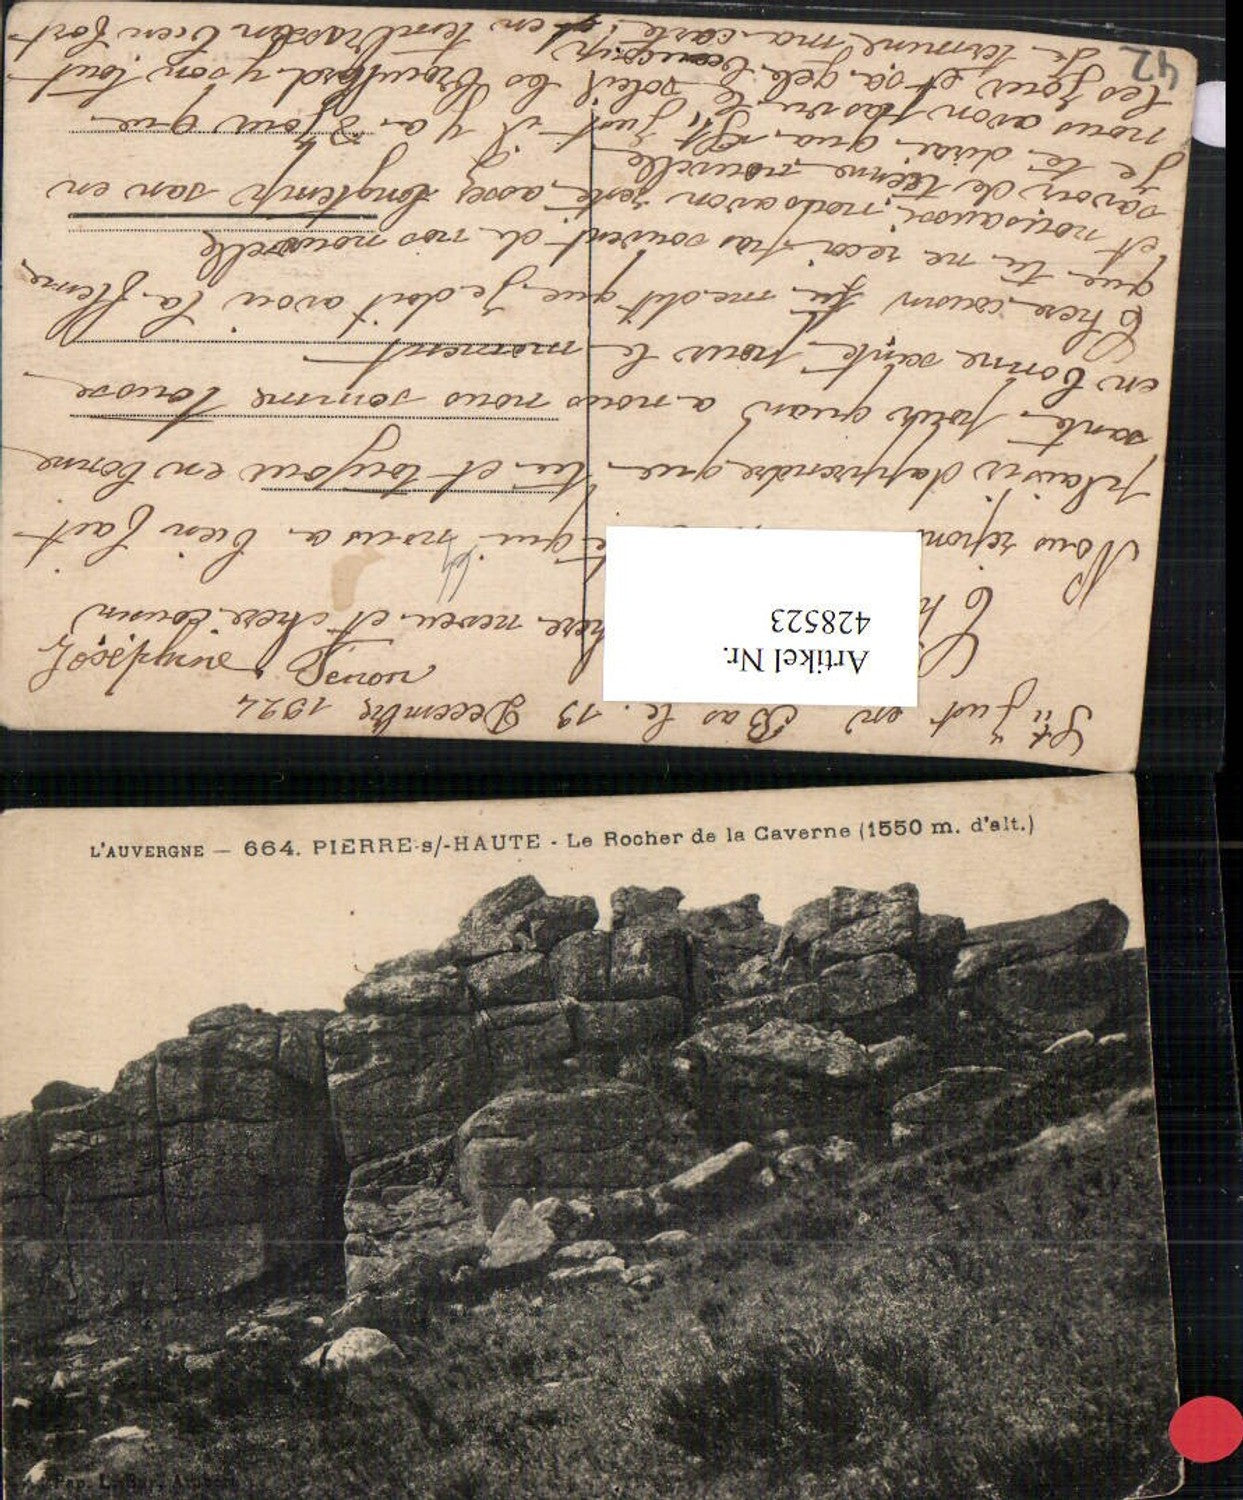 St Just en Bas le 19 Decembre 1924
Joséphine Penon
neveu et chere cousin
Nous qui nous a bien fait
plaisir d'apprendre que tu et toujour en bonne
santé quand a nous nous somme tousse
en bonne santé pour le moment
Chere cousin tu me dit que je doit avoir la flemme
que tu ne recoi pas souvent de nos nouvelle
et nous aussi nous avon reste assez longtemp san en
savoir de tienne nouvelle
Je te dirai qua St Just il y a 8 jour que
nous avon pas vu le soleil les brouillard y son tout
les jour et sa gele beaucoup
Je termine ma carte en tembrassan bien fort
42
Artikel Nr.
428523
L'AUVERGNE — 664. PIERRE-s/-HAUTE - Le Rocher de la Caverne (1550 m. d'alt.)